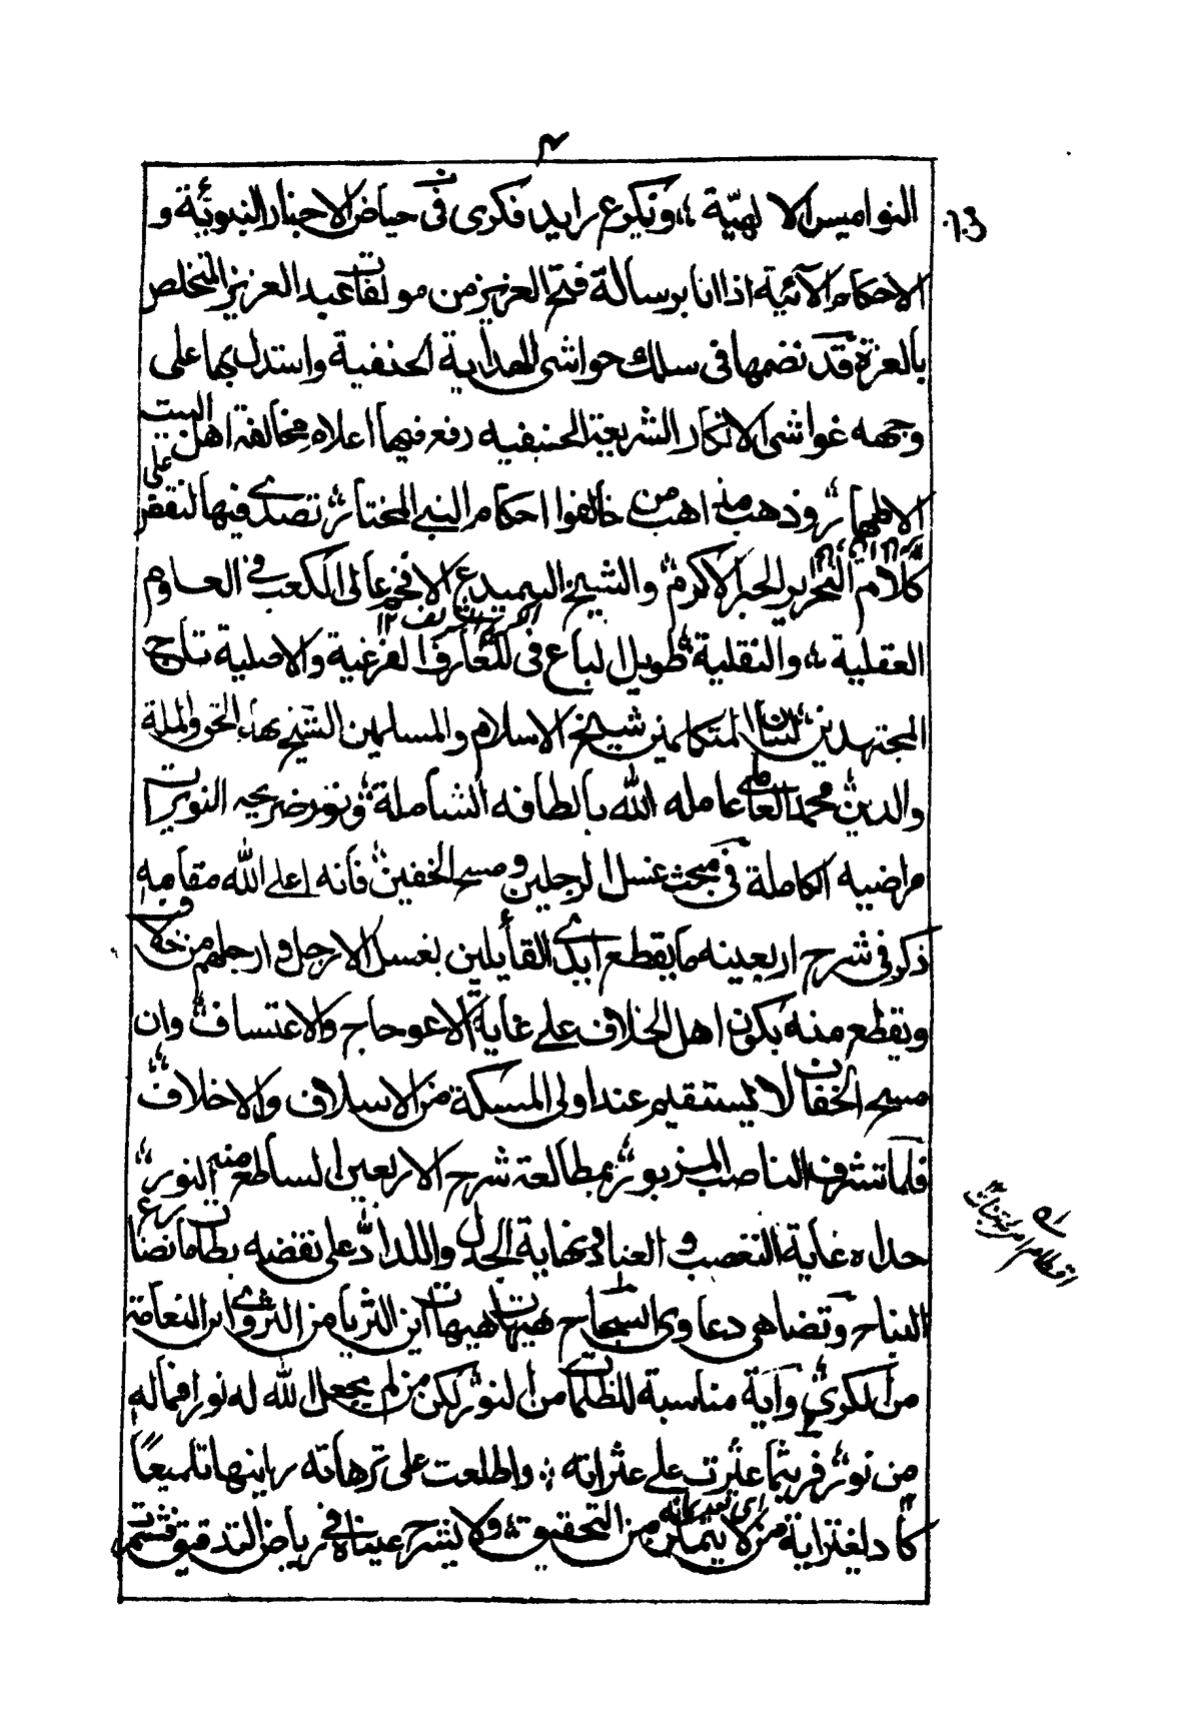 النواميس الالهيّة ؛، ويكرع رايد فكرى فى حياض الاخبار النبويّة و
الاحكام الآئية اذا انا برسالة فتح العزيز من مولفات عبد العزيز المتخلص
بالعزة قد نضمها فى سلك حواشى الهداية الحنفية واستدل بها على
وجهه غواشى الانكار الشريعة الحنيفيه رفع فيها اعلام مخالفة اهل البيت
الاطهار وذهب مذاهب من خالفوا احكام النبي المختار تصدى فيها لنقض
كلام النحرير الحبر الاكرم والشيخ السميدع الافخم عالى الكعب في العلوم
العقلية ؛، والنقلية طويل الباع فى المعارف الفرعية والاصلية تاج
المجتهدين لسان المتكلمين شيخ الاسلام والمسلمين الشيخ بهاء الحق والملة
والدين محمد العاملى عامله الله بالطافه الشاملة ونور ضريحه النوير
مراضيه الكاملة فى مبحث غسل الرجلين ومسح الخفين فانه اعلى الله مقامه
ذكر فى شرح اربعينه ما يقطع ايدى القائلين بغسل الارجل وارجلهم من خلاف
ويقطع منه بكون اهل الخلاف على غاية الاعوجاج والاعتساف وان
مسح الخفان لا يستقيم عند اولى المسكة من الاسلاف والاخلاف
فلما تشرف الناصب المزبور بمطالعة شرح الاربعين الساطع منه النور
حداه غاية التعصب و العناد ونهاية الجدل واللداد على نقضه بطامات
النباح وتضاهى دعاوى هيهات هيهات اين الثريا من الثرى واين النعامة
من الكرى واية مناسبة للظلمات من النور لكن من لم يجعل الله له نورا فماله
من نور فريثما عثرت على عثراته ؛، واطلعت على ترهاته رايتها تلميعًا
من التحقيق ولا يشرح عيناه في رياض التدقيق